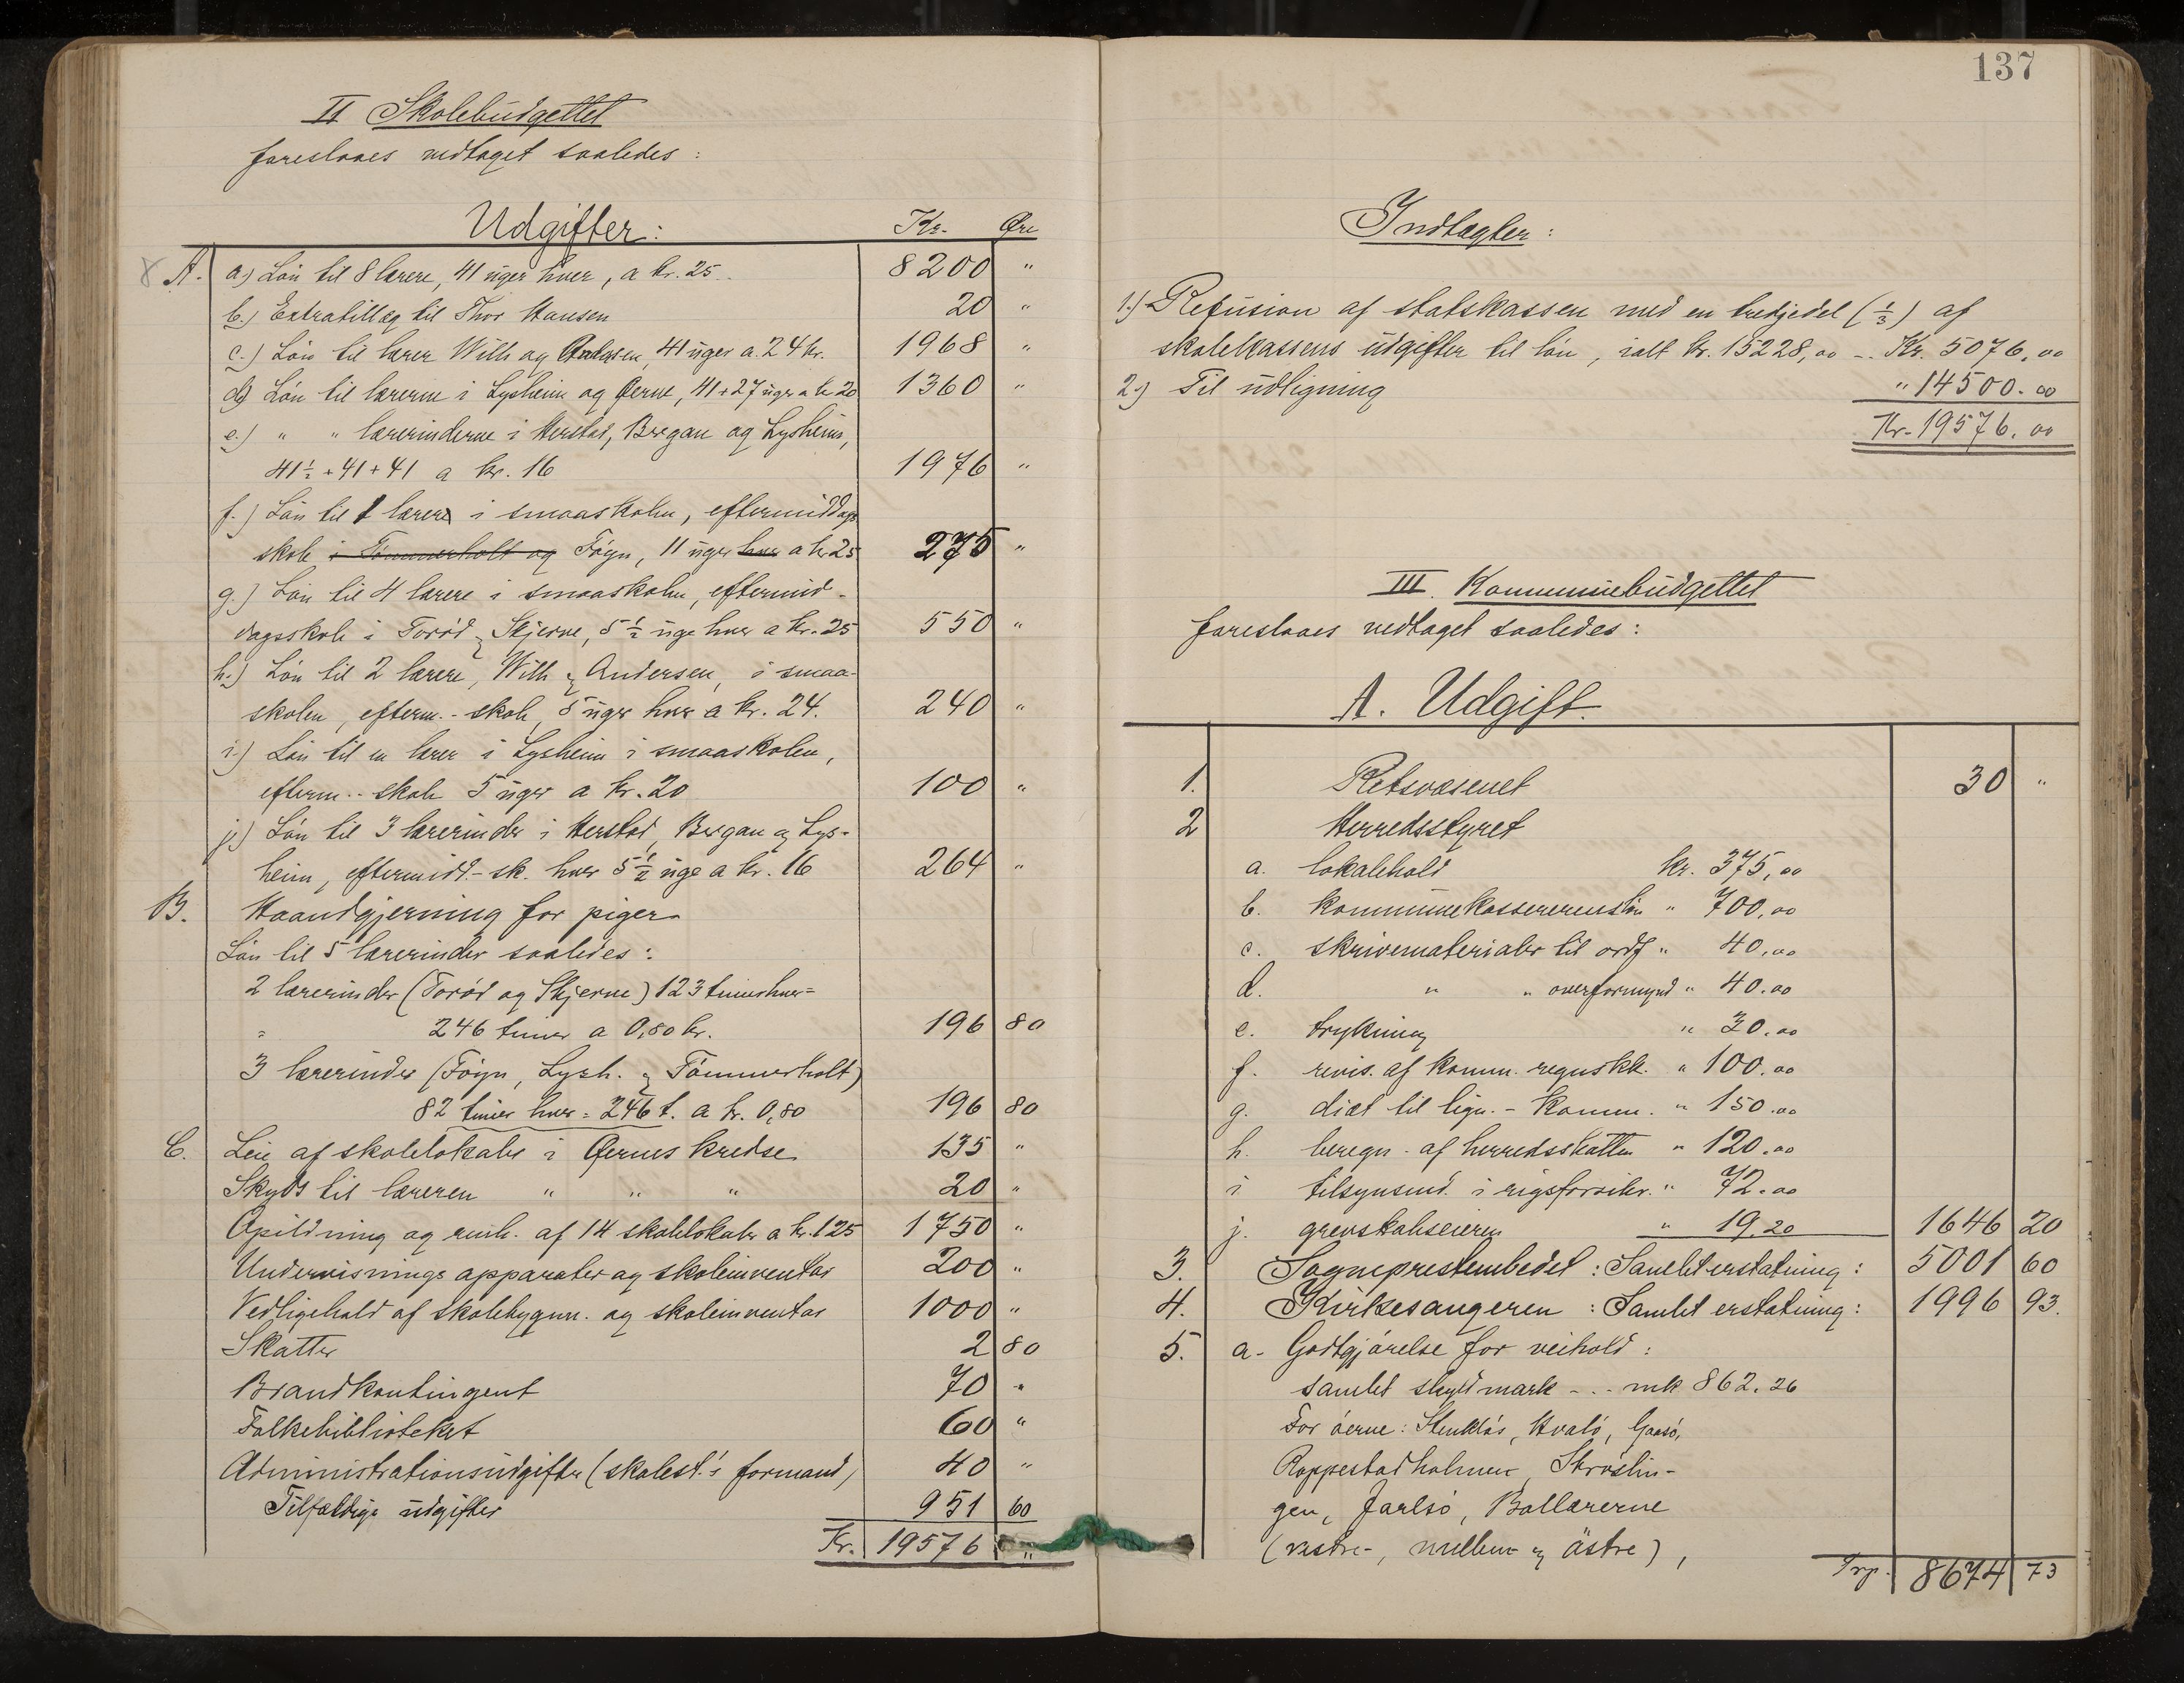 II Skolebudgettet
foreslaaes vedtaget saaledes:
Udgifter: Kr. Øre
8 A. a.) Lön til 8 lærere, 41 uger hver, a kr. 25 8200 "
b.) Extratillæg til Thor Hansen 20 "
c.) Lön til lærer Wilh og Andersen, 41 uger a 24 kr. 1968 "
d.) Lön til lærerne i Lysheim og Øerne, 41+27 uger a kr 20 1360 "
e.) " " lærerinderne i Herstad, Bergan og Lysheim,
41½+41+41 a kr. 16 1976 "
f.) Lön til 1 lærer i smaaskolen, eftermiddags
skole i Tömmerholt og Föyn, 11 uger hver a kr 25 275 "
g.) Lön til 4 lærere i smaaskolen, eftermid-
dagsskole i Torød & Skjerve, 5½ uge hver a kr. 25 550 "
h.) Lön til 2 lærere, Wilh & Andersen, i smaa-
skolen, efterm.-skole, 5 uger hver a kr. 24. 240 "
i.) Lön til en lærer i Lysheim i smaaskolen,
efterm.-skole 5 uger a kr. 20 100 "
j.) Lön til 3 lærerinder i Herstad, Bergan & Lys-
heim, eftermidd.-sk. hver 5½ uge a kr. 16 264 "
B. Haandgjerning for piger
Lön til 5 lærerinder saaledes:
2 lærerinder (Torød og Skjerve) 123 timer hver =
246 timer a 0,80 kr. 196 80
3 lærerinder (Föyn, Lysh. & Tömmerholt)
82 timer hver = 246 t. a kr. 0,80 196 80
C. Leie af skolelokale i Øernes kredse 135 "
Skyds til læreren " " " 20 "
Opildning og renh. af 14 skolelokaler a kr. 125 1750 "
Undervisnings apparater og skoleinventar 200 "
Vedligehold af skolebygnn. og skoleinventar 1000 "
Skatter 2 80
Brandkontingent 70 "
Folkebiblioteket 60 "
Administrationsudgifter (skolest.'s formand) 40 "
Tilfældige udgifter 951 60
Kr. 19576 "
137
Indtægter:
1.) Refusion af statskassen med en tredjedel (⅓) af
skolekassens udgifter til lön, ialt kr. 15228,00 -.. Kr. 5076,00
2.) Til udligning " 14500.00
Kr. 19576.00
III. Kommunebudgettet
foreslaaes vedtaget saaledes:
A. Udgift.
1. Retsvæsenet 30 "
2 Herredsstyret
a. lokalehold kr. 375,00
b. kommunekassererens lön " 700,00
c. skrivematerialer til ordf " 40,00
d. " " overformynd " 40.00
e. trykning " 30.00
f. revis. af komm. regnskk. " 100.00
g. diæt til lign.-komm. " 150.00
h. beregn. af herredsskatten " 120.00
i tilsynsmd. i rigsforsikr. " 72.00
j. grevskabseieren " 19.20 1646 20
3. Sogneprestembedet: Samlet erstatning: 5001 60
4. Kirkesangeren: Samlet erstatning: 1996 93.
5. a. Godtgjörelse for veihold:
samlet skyldmark -.. mk 862.26
For öerne: Stenklös, Hvalö, Gaasö,
Roppestadholmen, Skröslin-
gen, Jarlsö, Bollærerne
(vestre-, mellem- & östre),
Trp. 8674 73